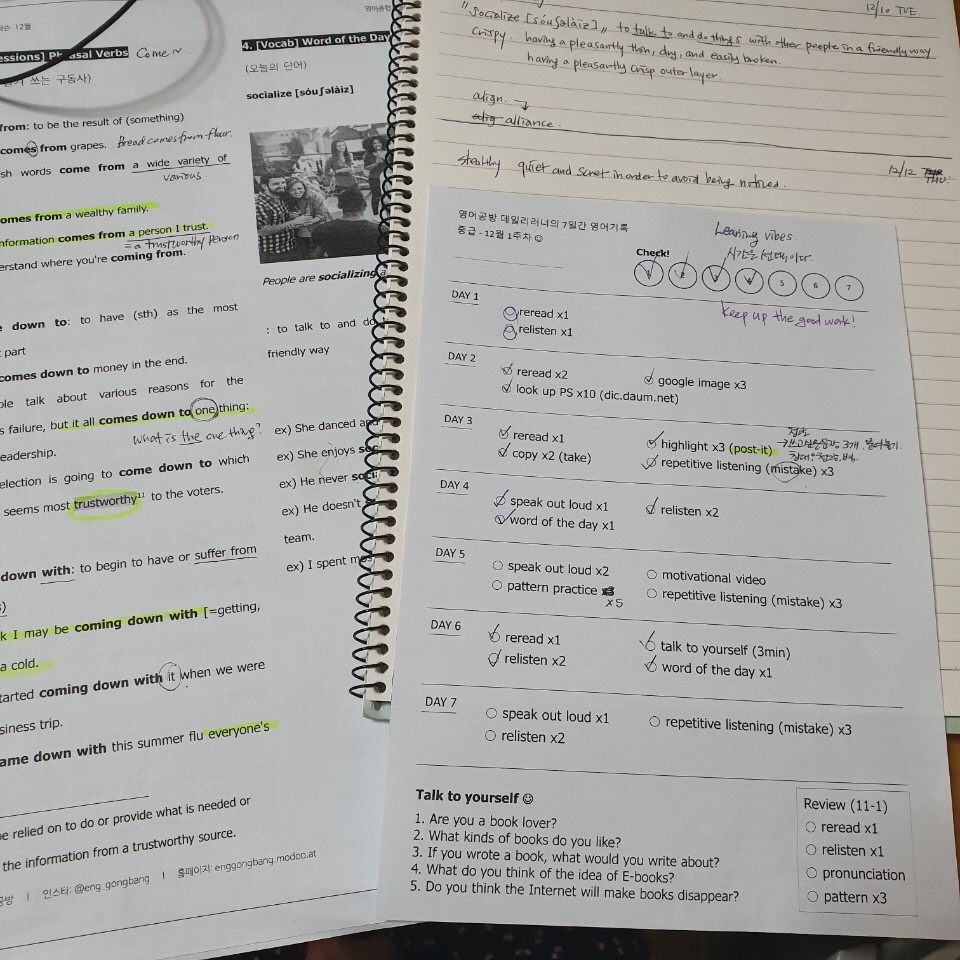 12월
essions] Phrasal Verbs Come~
쓰는 구동사)
from: to be the result of (something)
comes from grapes. Bread comes from flour.
sh words come from a wide variety of
various
omes from a wealthy family.
nformation comes from a person I trust.
= a trustworthy person
erstand where you're coming from.
e down to: to have (sth) as the most
part
comes down to money in the end.
ple talk about various reasons for the
s failure, but it all comes down to one thing:
What is the one thing?
eadership.
election is going to come down to which
seems most trustworthy¹⁾ to the voters.
down with: to begin to have or suffer from
k I may be coming down with [=getting,
a cold.
tarted coming down with it when we were
siness trip.
ame down with this summer flu everyone's
e relied on to do or provide what is needed or
the information from a trustworthy source.
공방 | 인스타: @eng_gongbang | 홈페이지: enggongbang.modoo.at
영어공방
4. [Vocab] Word of the Day
(오늘의 단어)
socialize [sóuʃəlàiz]
People are socializing a
: to talk to and do
friendly way
ex) She danced and
ex) She enjoys so
ex) He never soci
ex) He doesn't
team.
ex) I spent mos
12/10 TUE.
"socialize [sóuʃəlàiz]" to talk to and do things with other people in a friendly way
crispy. having a pleasantly thin, dry, and easily broken.
having a pleasantly crisp outer layer.
align.
alig alliance.
stealthy quiet and secret in order to avoid being noticed.
12/12 THU.
영어공방 데일리러너의 7일간 영어기록
중급 - 12월 1주차 ☺
Learning vibes.
Check!
1 2 3 4 5 6 7
Keep up the good work!
DAY 1
reread x1
relisten x1
DAY 2
reread x2
google image x3
look up PS x10 (dic.daum.net)
DAY 3
reread x1
highlight x3 (post-it)
copy x2 (take)
repetitive listening (mistake) x3
DAY 4
speak out loud x1
relisten x2
word of the day x1
DAY 5
speak out loud x2
motivational video
pattern practice x3
x5
repetitive listening (mistake) x3
DAY 6
reread x1
talk to yourself (3min)
relisten x2
word of the day x1
DAY 7
speak out loud x1
repetitive listening (mistake) x3
relisten x2
Talk to yourself ☺
1. Are you a book lover?
2. What kinds of books do you like?
3. If you wrote a book, what would you write about?
4. What do you think of the idea of E-books?
5. Do you think the Internet will make books disappear?
Review (11-1)
reread x1
relisten x1
pronunciation
pattern x3